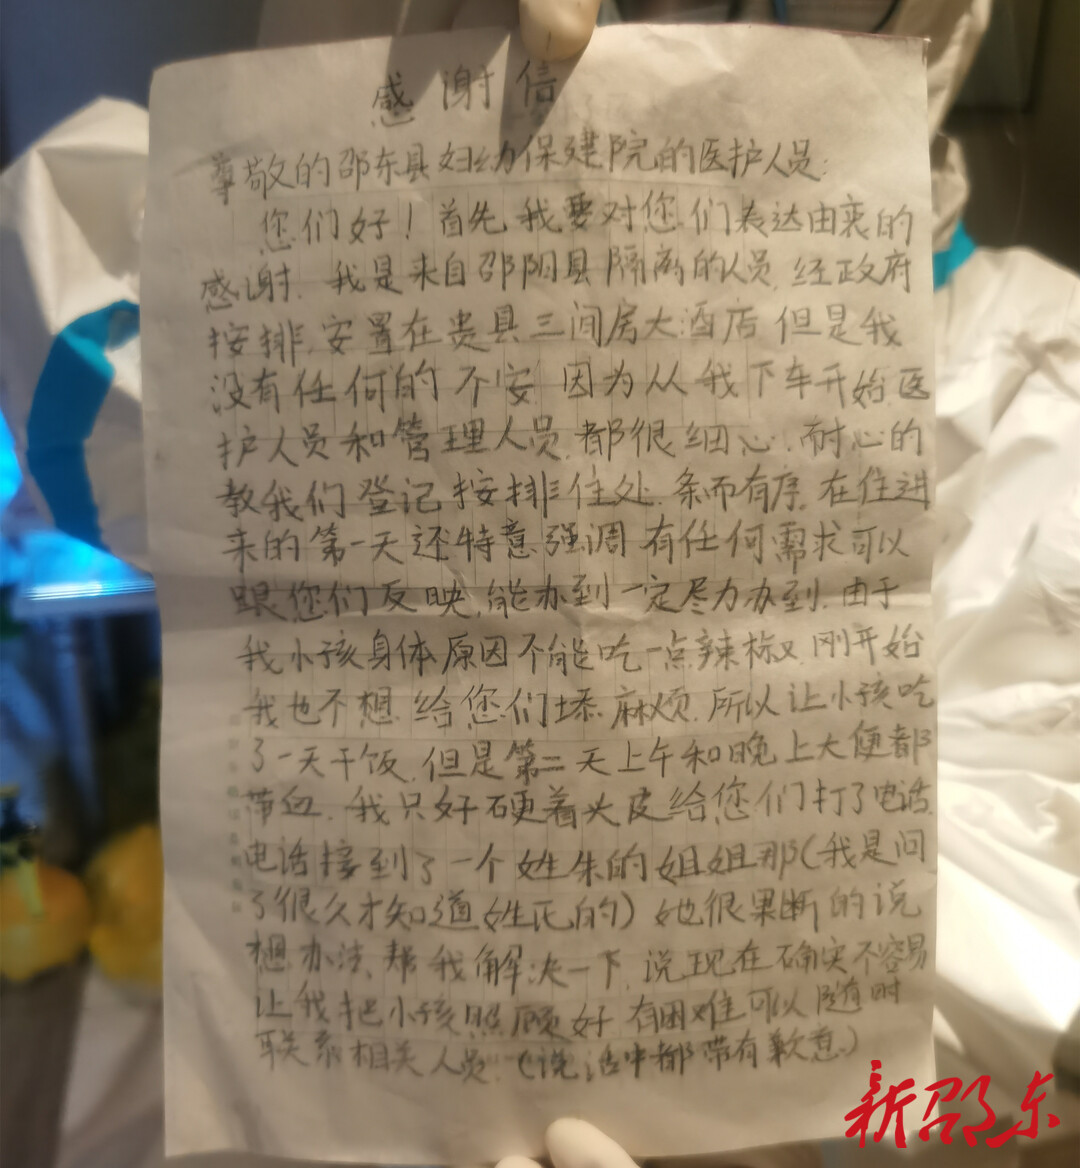 感谢信
尊敬的邵东县妇幼保建院的医护人员:
您们好！首先我要对您们表达由衷的
感谢.我是来自邵阳县隔离的人员.经政府
按排.安置在贵县三间房大酒店但是我
没有任何的不安因为从我下车开始.医
护人员和管理人员.都很细心.耐心的
教我们登记按排住处.条而有序.在住进
来的第一天还特意强调有任何需求可以
跟您们反映.能办到一定尽力办到.由于
我小孩身体原因不能吃一点辣椒.刚开始
我也不想给您们添麻烦.所以让小孩吃
了一天干饭.但是第二天上午和晚上大便都
带血.我只好硬着头皮给您们打了电话.
电话接到了一个姓朱的姐姐那(我是问
了很久才知道姓氏的)她很果断的说
想办法帮我解决一下.说现在确实不容易
让我把小孩照顾好有困难可以随时
联系相关人员.(说话中都带有歉意.)
新邵东